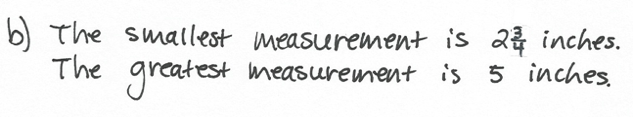 b) The smallest measurement is 2 3/4 inches.
The greatest measurement is 5 inches.